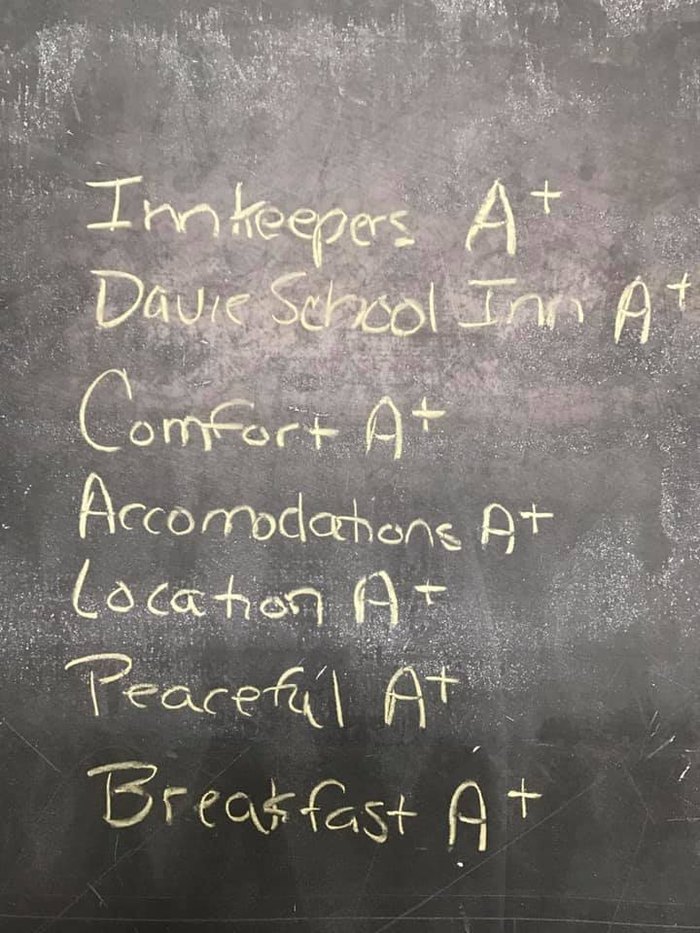 Innkeepers A+
Davie School Inn A+
Comfort A+
Accomodations A+
Location A+
Peaceful A+
Breakfast A+